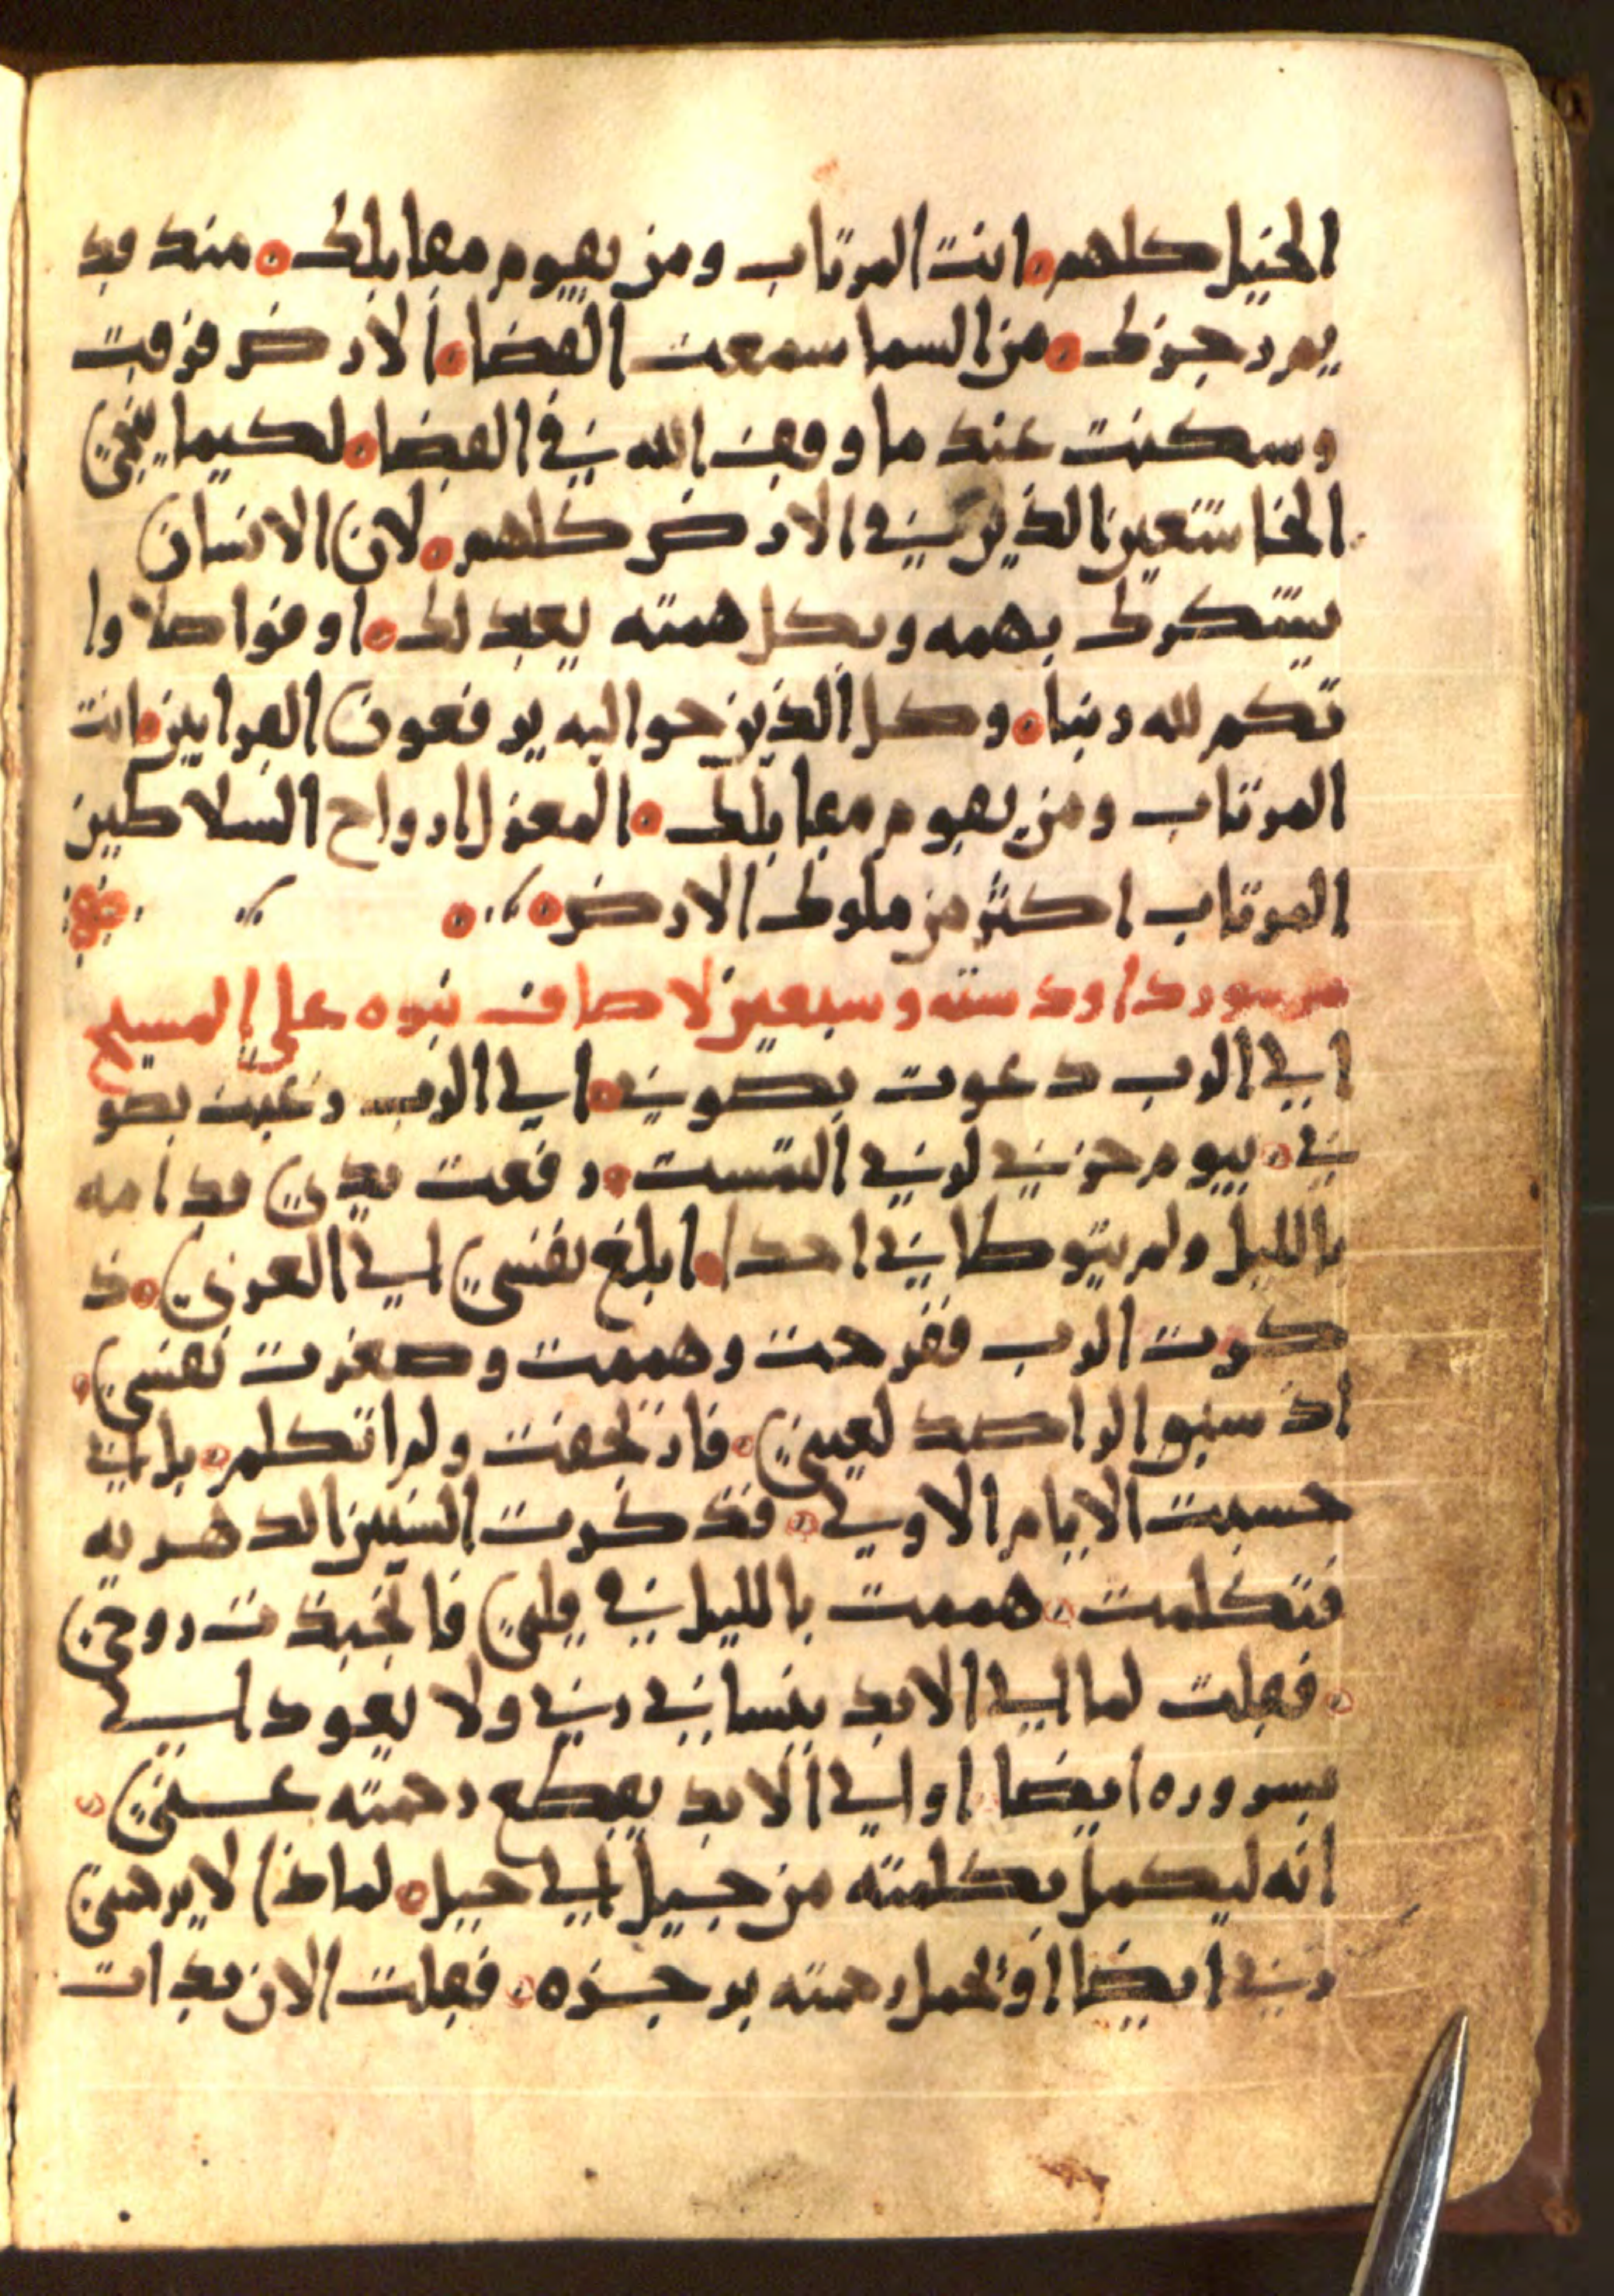 الخيل كلهم ۰ انت المرتاب ومن يقوم مقابلك ۰ منذ قد
يمر رجزك ۰ من السما سمعت القضا ۰ الارض فزقت
وسكنت عند ما وقف الله في القضا ۰ لكيما ينجي
الخاشعين الذين في الارض كلهم ۰ لان الانسان
يشكرك بهمه وبكل همته يعبد لك ۰ اوفوا صلاوا
تكم لله ربنا ۰ وكل الذين حواليه يرفعون القرابين ۰ انت
المرتاب ومن يقوم مقابلك ۰ المعزل ارواح السلاطين
المرتاب اكثر من ملوك الارض ۰
مزمور داود سته وسبعين لاصاف نبوه علي المسيح
الي الرب دعوت بصوتي ۰ الي الرب رغبت بصو
تي ۰ بيوم حزني لربي التمست ۰ رفعت يدي قدامه
بالليل ولم يتوطاني احدا ۰ ابلغ نفسي الي العزي ۰ ذ
كرت الرب ففرحت وهممت وصغرت نفسي ۰
اذ سبق الراصد لعيني ۰ فارتجفت ولم اتكلم ۰ بل اني
حسبت الايام الاولي ۰ فذكرت السنين الدهريه
فتكلمت ۰ هممت بالليل في قلبي فانجبذت روحي
۰ فقلت لما الي الابد ينساني ربي ولا يعود الي
بسروره ايضا او الي الابد يقطع رحمته عني ۰
انه ليكمل بكلمته من جيل الي جيل ۰ لماذا لا يرحمني
ربي ايضا او تحمل رحمته برجزه ۰ فقلت الان بدات